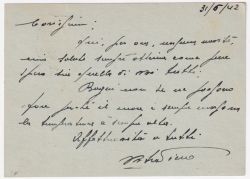 31/5/42
Carissimi:
Qui per ora, nessuna novità,
mia salute sempre ottima come pure
spero sia quella di voi tutti.
Bagni non se ne possono
fare perché il mare è sempre mosso
la temperatura è sempre alta.
Affettuosità a tutti.